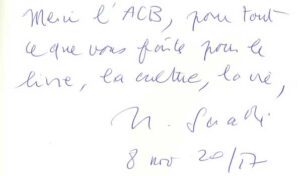 Merci l'ACB, pour tout
ce que vous faite pour le
livre, la culture, la vie,
8 nov 2017